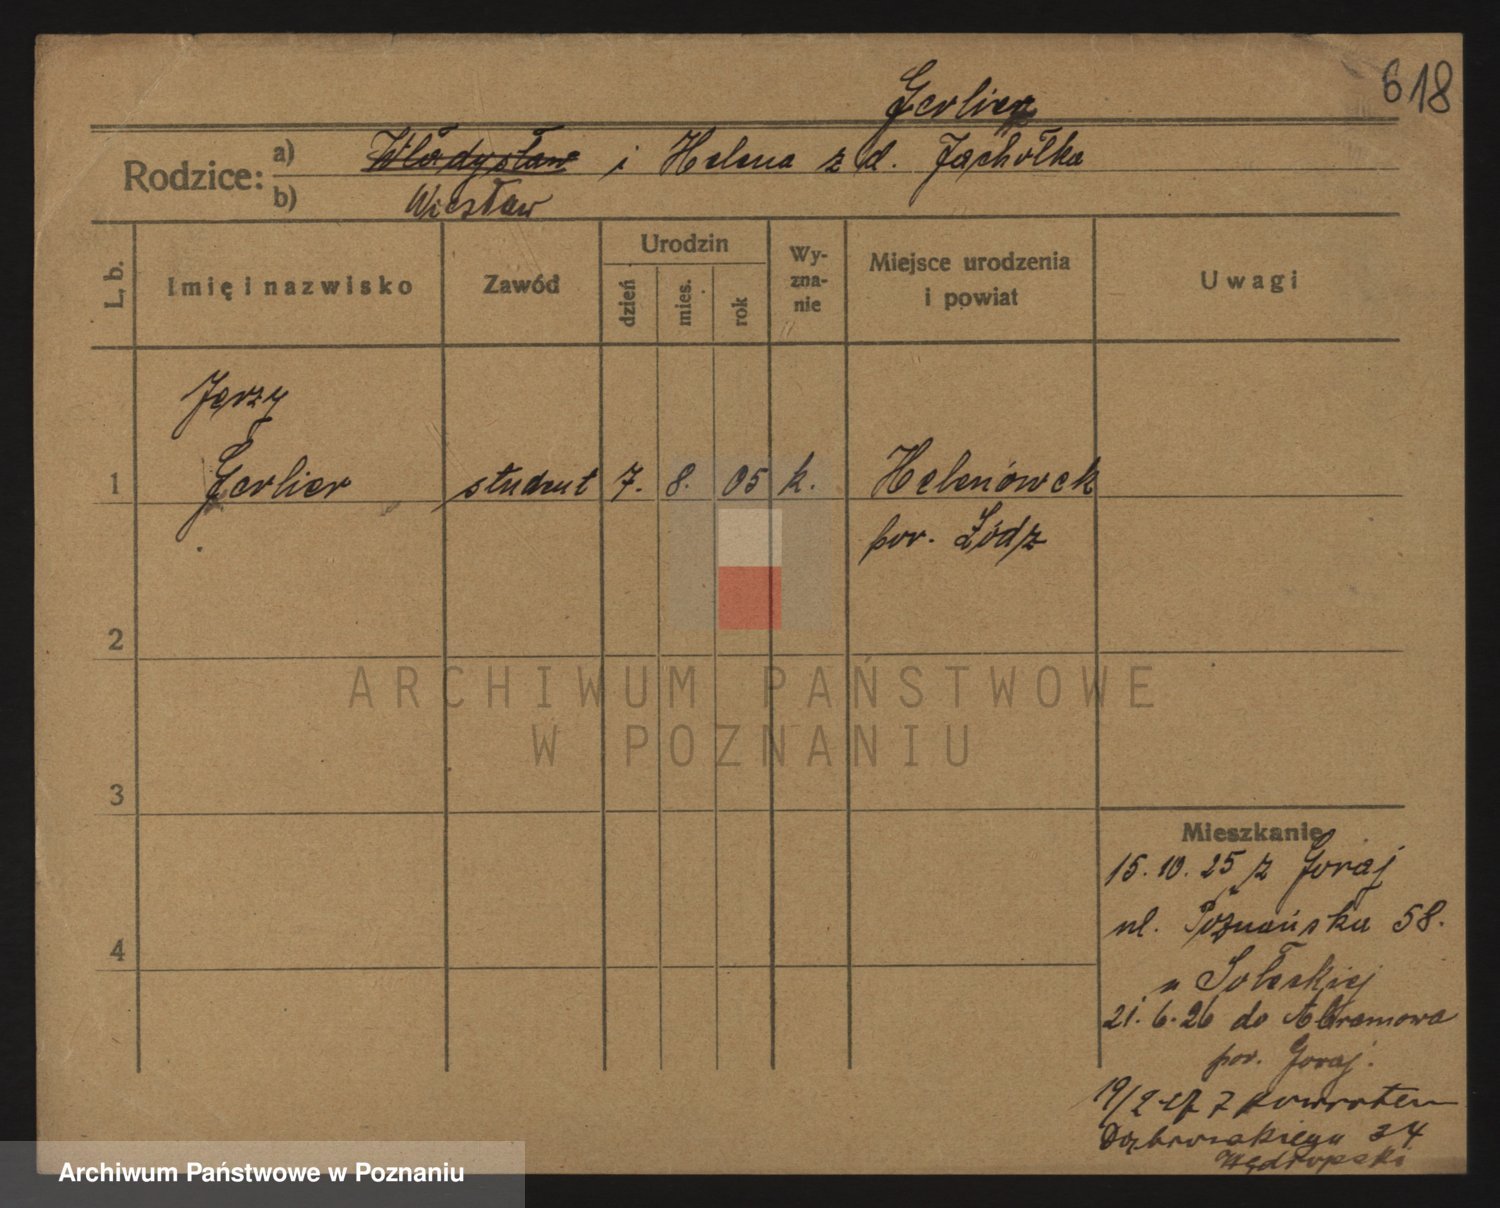 618
Gerlier
Rodzice: a) Władysław i Helena z d. Jachółka
b) Wiesław
L. b.
Imię i nazwisko
Zawód
Urodzin
dzień
mies.
rok
Wy-
zna-
nie
Miejsce urodzenia
i powiat
Uwagi
Jerzy
1 Gerlier student 7. 8. 05 k. Helenówek
pow. Łódz
2
3
4
ARCHIWUM PAŃSTWOWE
W POZNANIU
Mieszkanie
15. 10. 25 z Goraj
ul. Poznańska 58.
u Sołeckiej
21. 6. 26 do Abramowa
pow. Goraj.
19/2 27 z powrotem
Dąbrowskiego 34
Archiwum Państwowe w Poznaniu